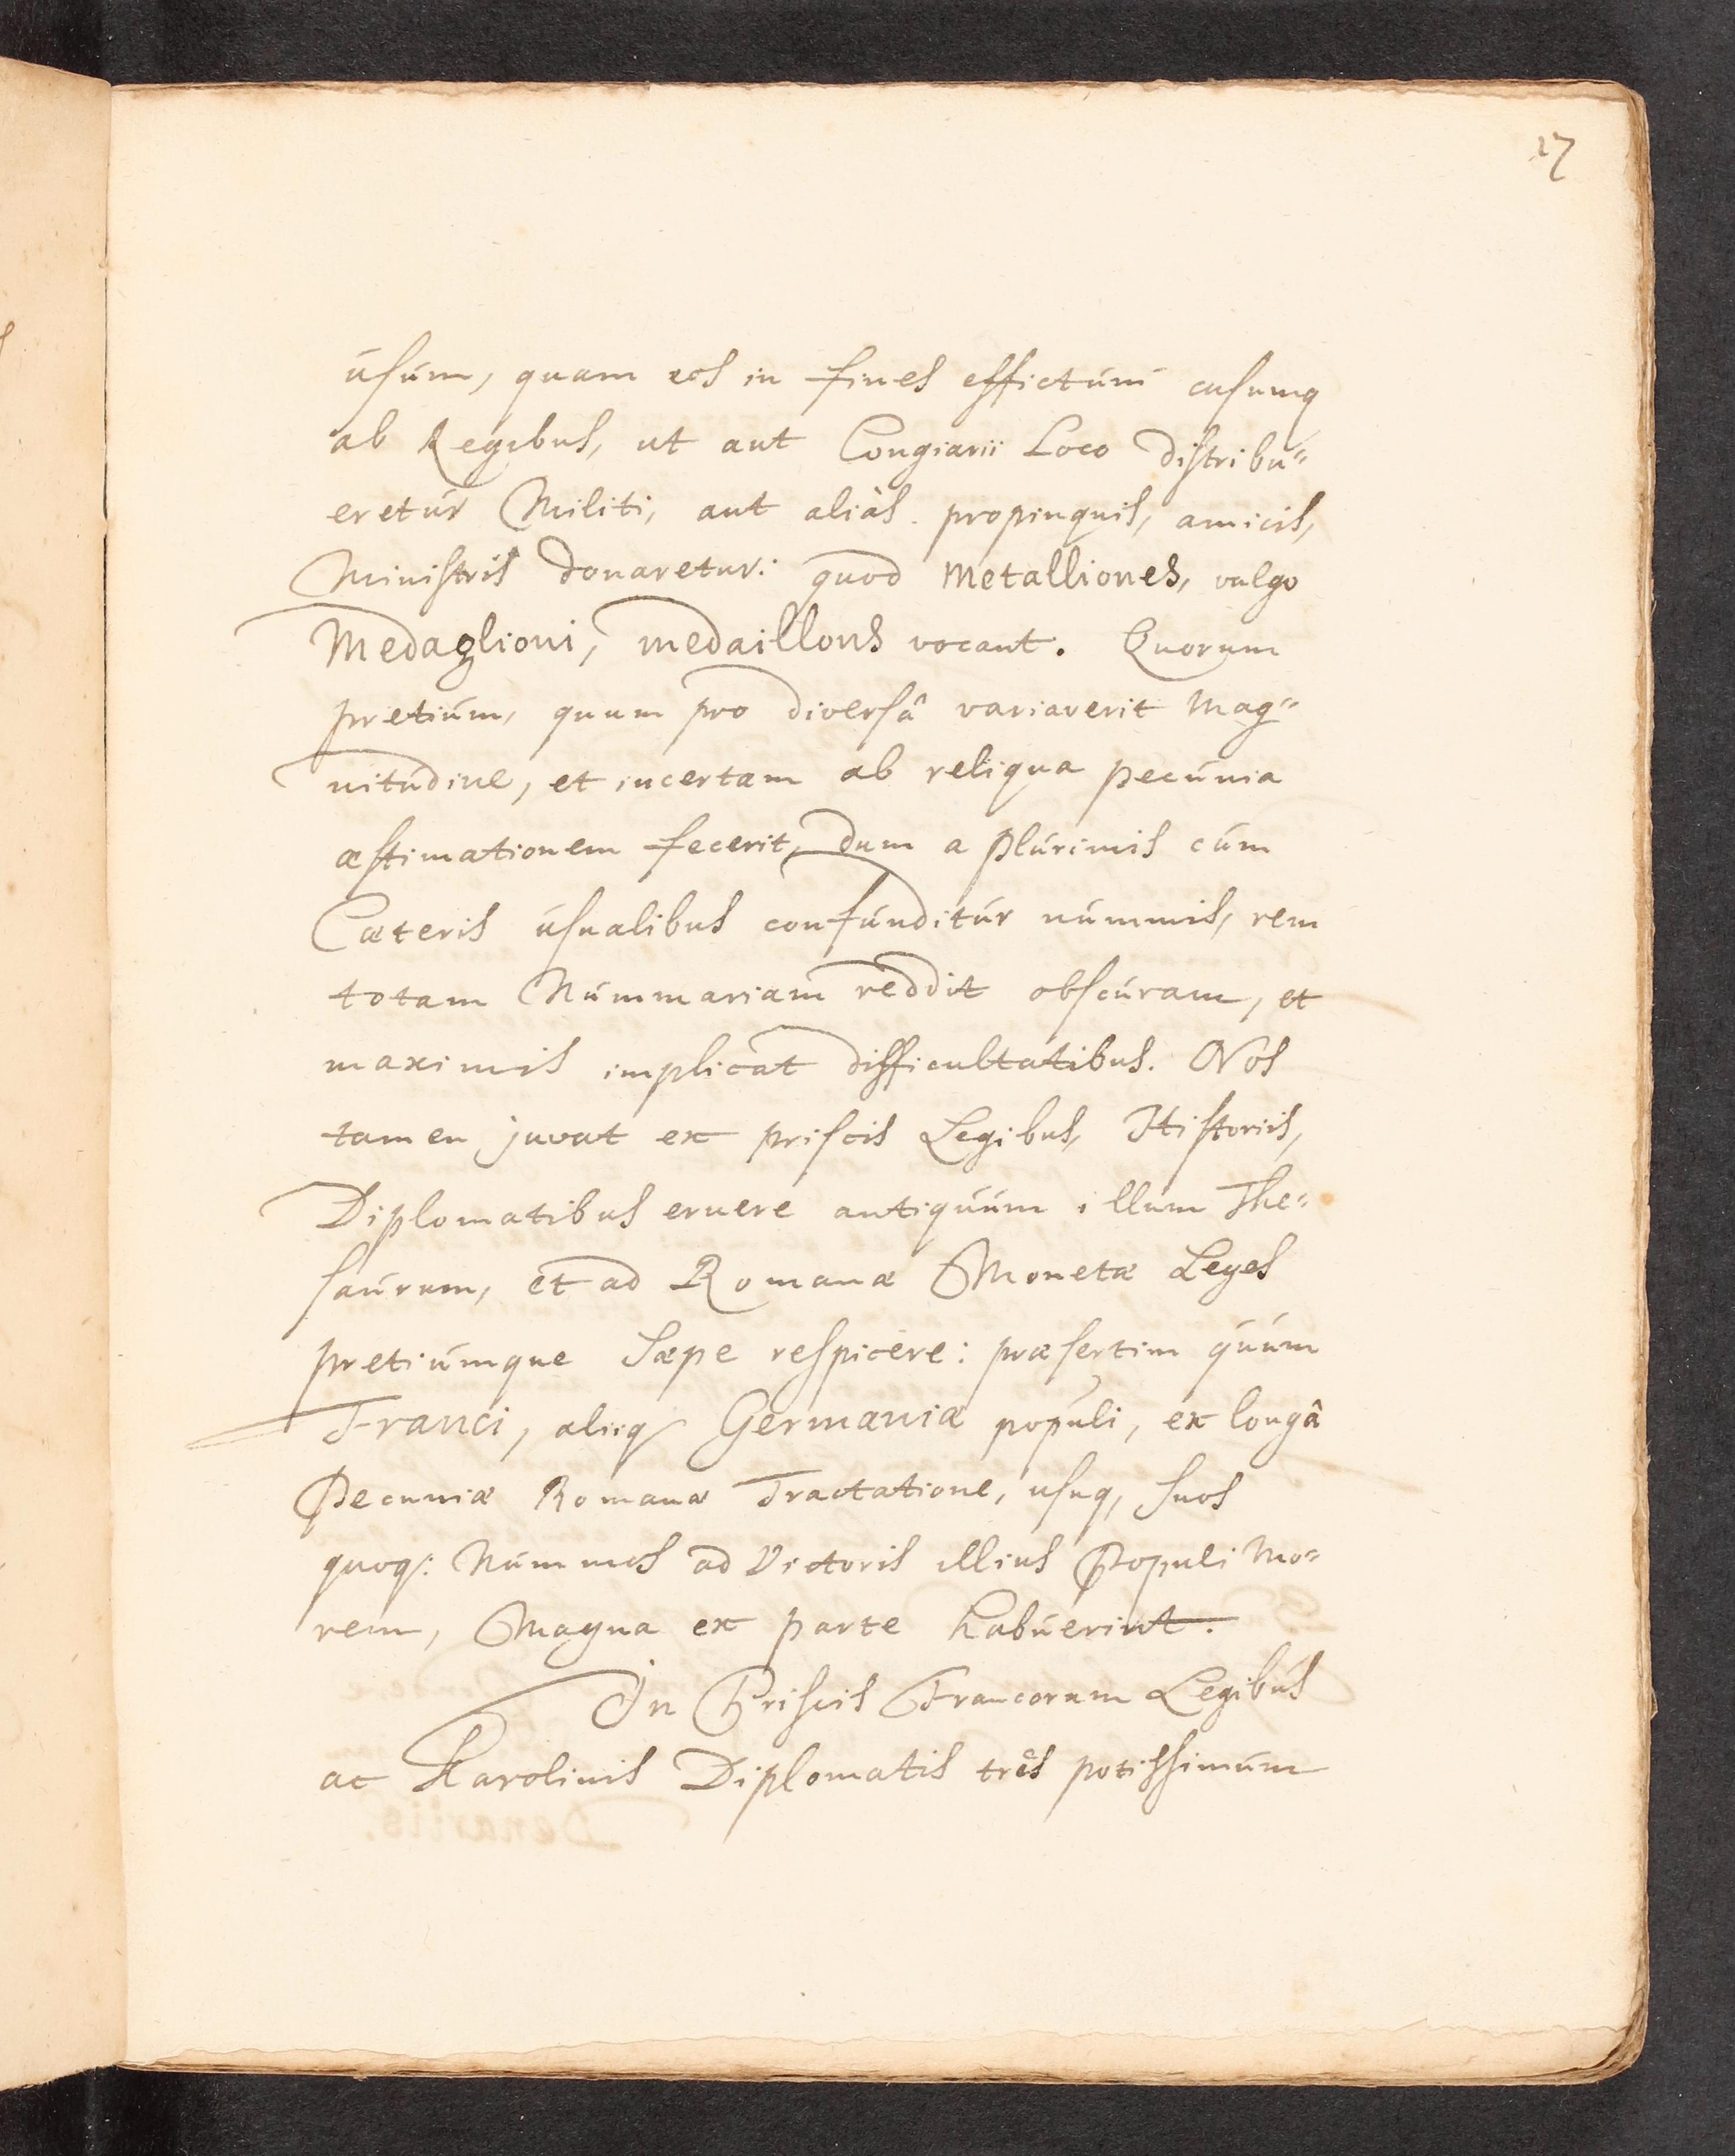 27
usum, quam eos in fines effictum cusumq
ab Regibus, ut aut Congiarii Loco distribu=
eretur Militi, aut aliàs propinquis, amicis,
Ministris donaretur: quod Metalliones, vulgo
Medaglioni, medaillons vocant. Quorum
pretium, quum pro diversâ variaverit Mag=
nitudine, et incertam ab reliqua pecunia
æstimationem fecerit, dum a plurimis cum
Cæteris usualibus confunditur nummis, rem
totam Nummariam reddit obscuram, et
maximis implicat difficultatibus. Nos
tamen juvat ex priscis Legibus, Historiis,
Diplomatibus eruere antiquum illum The=
saurum, et ad Romanæ Monetæ Leges
pretiumque Sæpe respicere: præsertim quum
Franci, aliiq Germaniæ populi, ex longâ
Pecuniæ Romanæ Tractatione, usuq, suos
quoq: Nummos ad Victoris illius Populi Mo=
rem, Magna ex parte habuerint.
In Priscis Francorum Legibus
ac Karolinis Diplomatis três potissimum